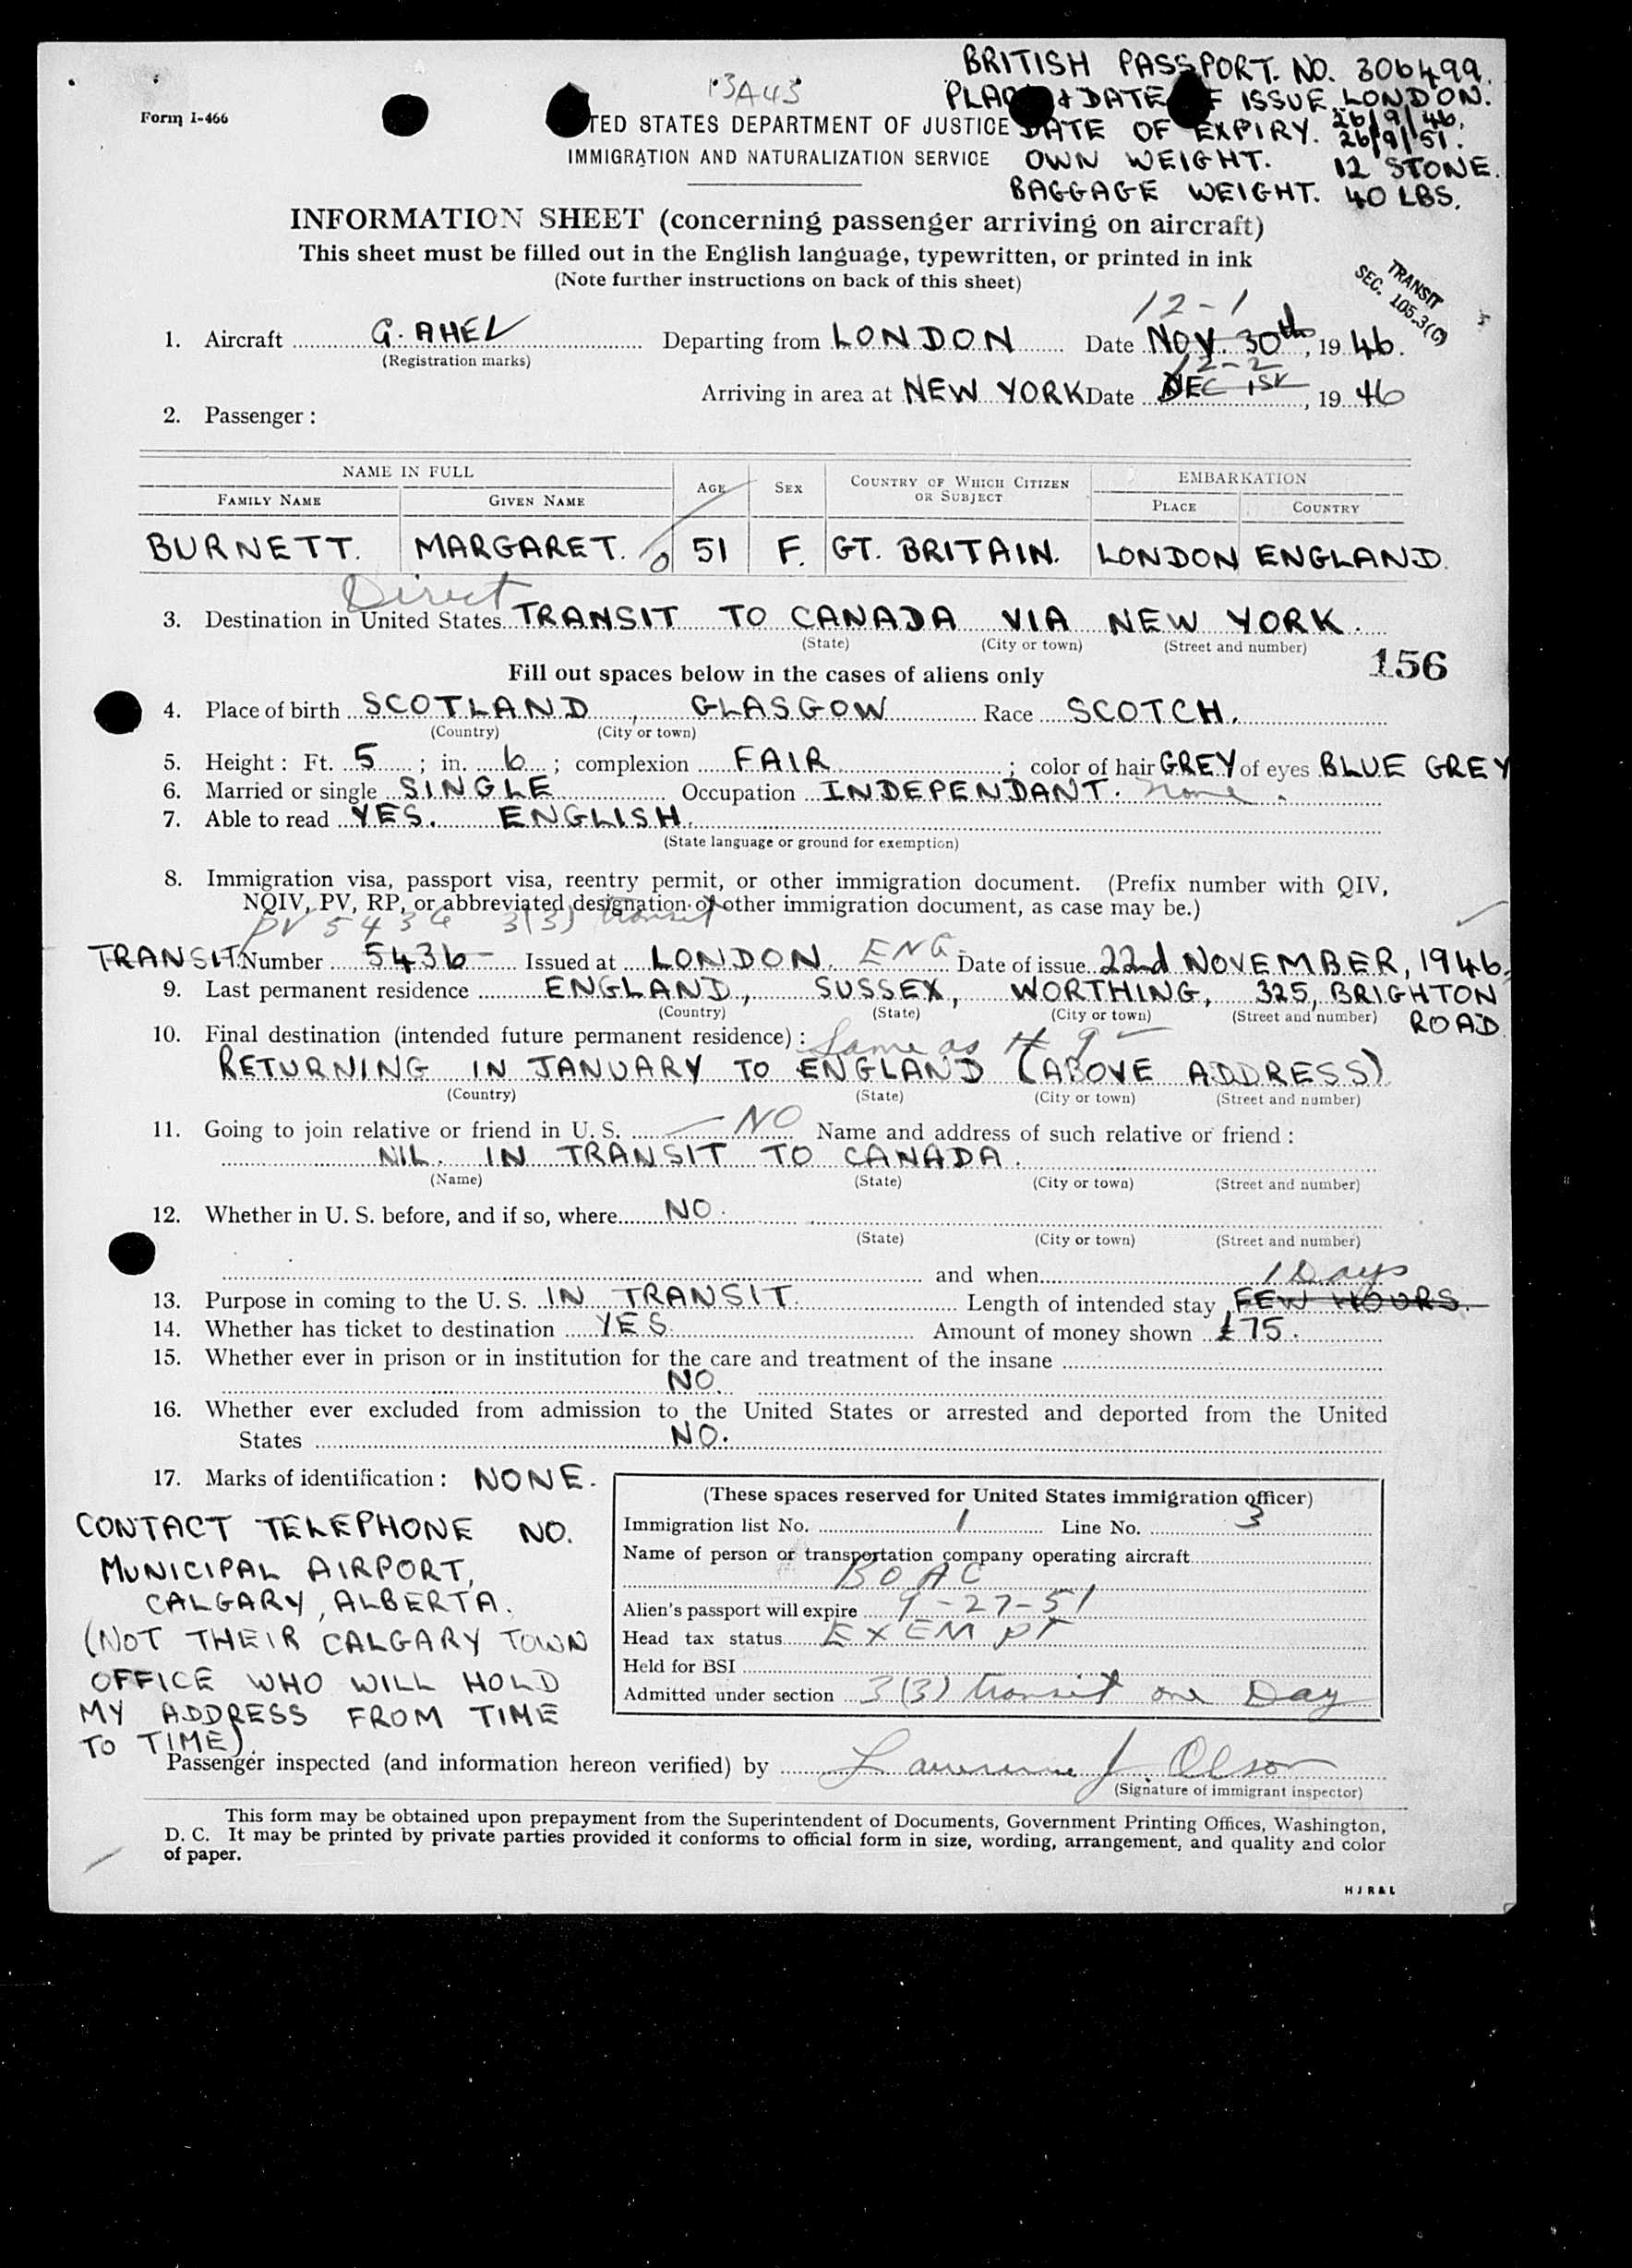 BRITISH PASSPORT. NO. 306499.
13A43
PLACE & DATE OF ISSUE. LONDON.
26/9/46.
Form I-466
UNITED STATES DEPARTMENT OF JUSTICE
DATE OF EXPIRY. 26/9/51.
IMMIGRATION AND NATURALIZATION SERVICE
OWN WEIGHT. 12 STONE.
BAGGAGE WEIGHT. 40 LBS.
INFORMATION SHEET (concerning passenger arriving on aircraft)
This sheet must be filled out in the English language, typewritten, or printed in ink
(Note further instructions on back of this sheet)
TRANSIT
SEC. 105.3(G)
12-1
1. Aircraft G. AHEL Departing from LONDON Date NOV. 30th, 1946.
(Registration marks)
12-2
Arriving in area at NEW YORK Date DEC 1st, 1946
2. Passenger:
NAME IN FULL AGE SEX COUNTRY OF WHICH CITIZEN OR SUBJECT EMBARKATION
FAMILY NAME GIVEN NAME PLACE COUNTRY
BURNETT. MARGARET. 51 F. GT. BRITAIN. LONDON ENGLAND.
Direct
3. Destination in United States TRANSIT TO CANADA VIA NEW YORK.
(State) (City or town) (Street and number)
Fill out spaces below in the cases of aliens only
156
4. Place of birth SCOTLAND, GLASGOW Race SCOTCH.
(Country) (City or town)
5. Height: Ft. 5; in. 6; complexion FAIR; color of hair GREY of eyes BLUE GREY
6. Married or single SINGLE Occupation INDEPENDANT. none.
7. Able to read YES. ENGLISH.
(State language or ground for exemption)
8. Immigration visa, passport visa, reentry permit, or other immigration document. (Prefix number with QIV,
NQIV, PV, RP, or abbreviated designation of other immigration document, as case may be.)
PV 5436 3(3) transit
TRANSIT. Number 5436 Issued at LONDON. ENG. Date of issue 22nd NOVEMBER, 1946,
9. Last permanent residence ENGLAND, SUSSEX, WORTHING, 325, BRIGHTON
(Country) (State) (City or town) (Street and number) ROAD.
10. Final destination (intended future permanent residence): Same as # 9
RETURNING IN JANUARY TO ENGLAND (ABOVE ADDRESS)
(Country) (State) (City or town) (Street and number)
11. Going to join relative or friend in U. S. NO Name and address of such relative or friend:
NIL. IN TRANSIT TO CANADA.
(Name) (State) (City or town) (Street and number)
12. Whether in U. S. before, and if so, where NO.
(State) (City or town) (Street and number)
and when
1 Days
13. Purpose in coming to the U. S. IN TRANSIT. Length of intended stay FEW HOURS.
14. Whether has ticket to destination YES. Amount of money shown £75.
15. Whether ever in prison or in institution for the care and treatment of the insane
NO.
16. Whether ever excluded from admission to the United States or arrested and deported from the United
States NO.
17. Marks of identification: NONE.
CONTACT TELEPHONE NO.
MUNICIPAL AIRPORT,
CALGARY, ALBERTA.
(NOT THEIR CALGARY TOWN
OFFICE WHO WILL HOLD
MY ADDRESS FROM TIME
TO TIME).
(These spaces reserved for United States immigration officer)
Immigration list No. 1 Line No. 3
Name of person or transportation company operating aircraft
BOAC
Alien's passport will expire 9-27-51
Head tax status EXEMPT
Held for BSI
Admitted under section 3(3) transit one Day
Passenger inspected (and information hereon verified) by Lawrence J. Olson
(Signature of immigrant inspector)
This form may be obtained upon prepayment from the Superintendent of Documents, Government Printing Offices, Washington,
D. C. It may be printed by private parties provided it conforms to official form in size, wording, arrangement, and quality and color
of paper.
H J R & L